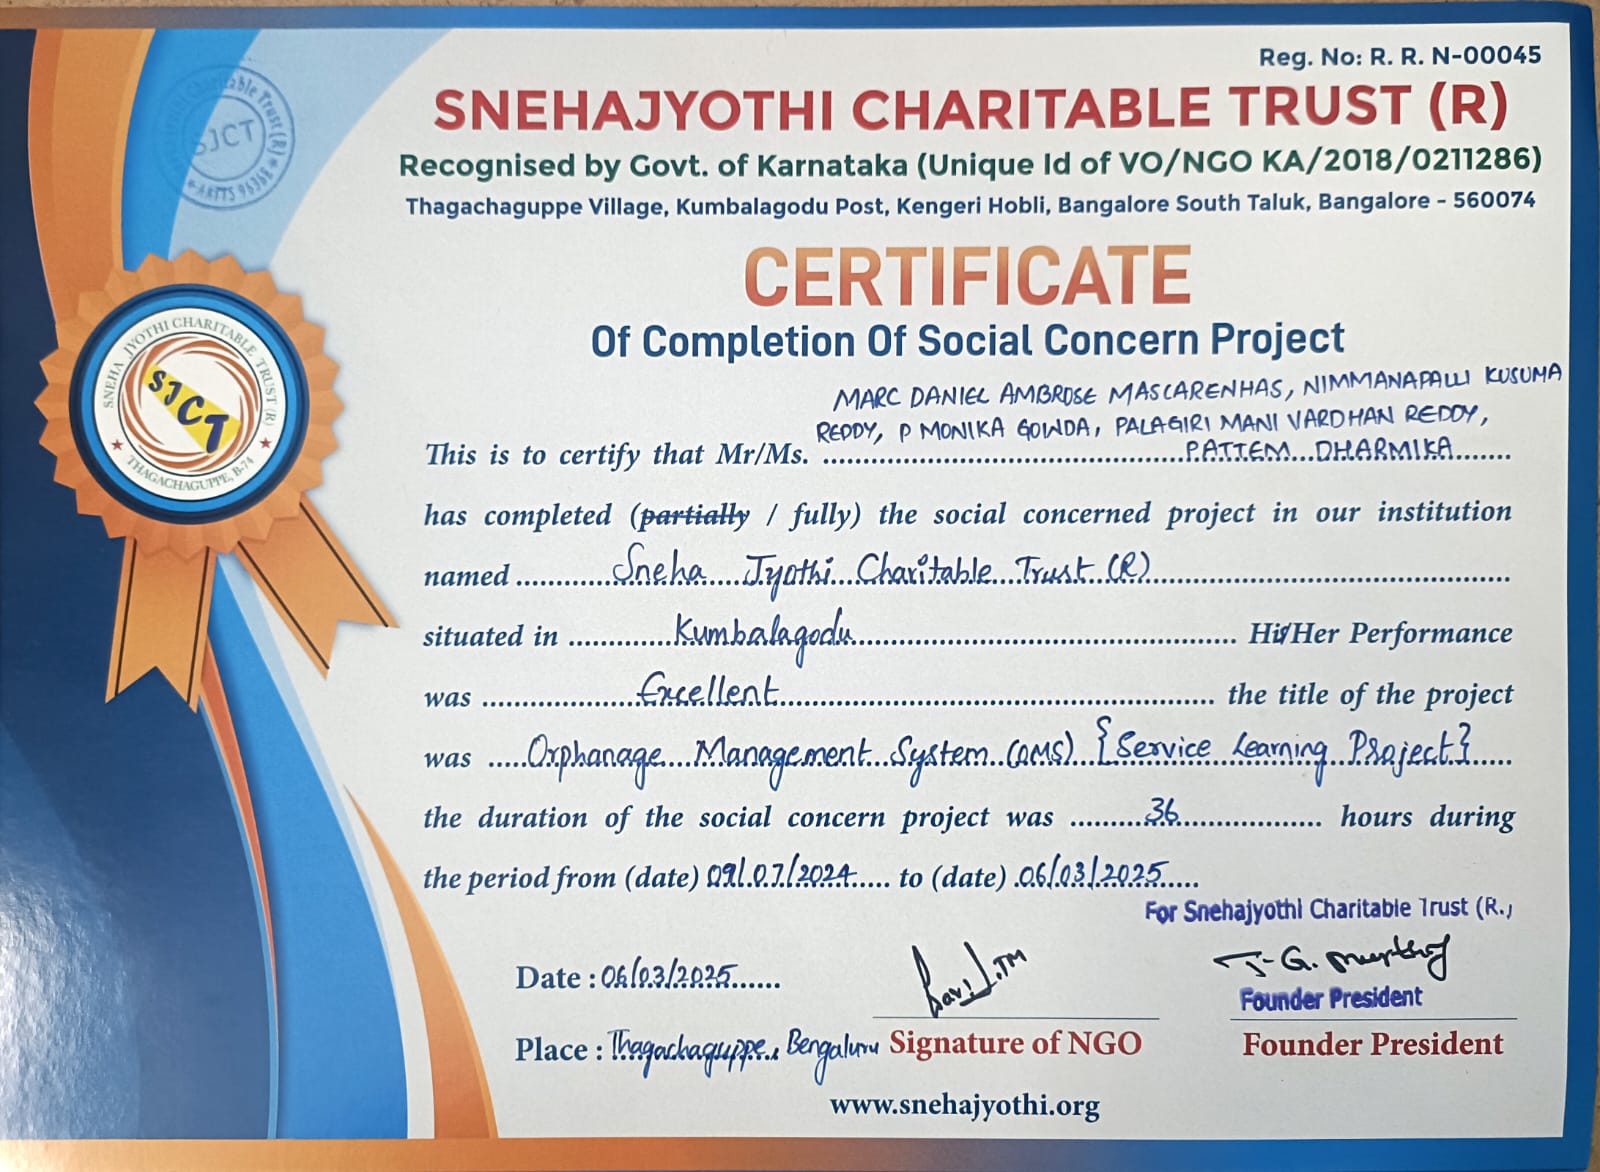 Reg. No: R. R. N-00045
SNEHAJYOTHI CHARITABLE TRUST (R)
Recognised by Govt. of Karnataka (Unique Id of VO/NGO KA/2018/0211286)
Thagachaguppe Village, Kumbalagodu Post, Kengeri Hobli, Bangalore South Taluk, Bangalore - 560074
SJCT
SNEHA JYOTHI CHARITABLE TRUST (R)
SJCT
THAGACHAGUPPE, B-74
CERTIFICATE
Of Completion Of Social Concern Project
MARC DANIEL AMBROSE MASCARENHAS, NIMMANAPALLI KUSUMA
REDDY, P MONIKA GOWDA, PALAGIRI MANI VARDHAN REDDY,
This is to certify that Mr/Ms. PATTEM DHARMIKA
has completed (partially / fully) the social concerned project in our institution
named Sneha Jyothi Charitable Trust (R)
situated in Kumbalagodu His/Her Performance
was Excellent the title of the project
was Orphanage Management System (OMS) {Service Learning Project}
the duration of the social concern project was 36 hours during
the period from (date) 09/07/2024 to (date) 06/03/2025
For Snehajyothi Charitable Trust (R.)
Date : 06/03/2025
T-G. Murthy
Founder President
Place : Thagachaguppe, Bengaluru Signature of NGO Founder President
www.snehajyothi.org